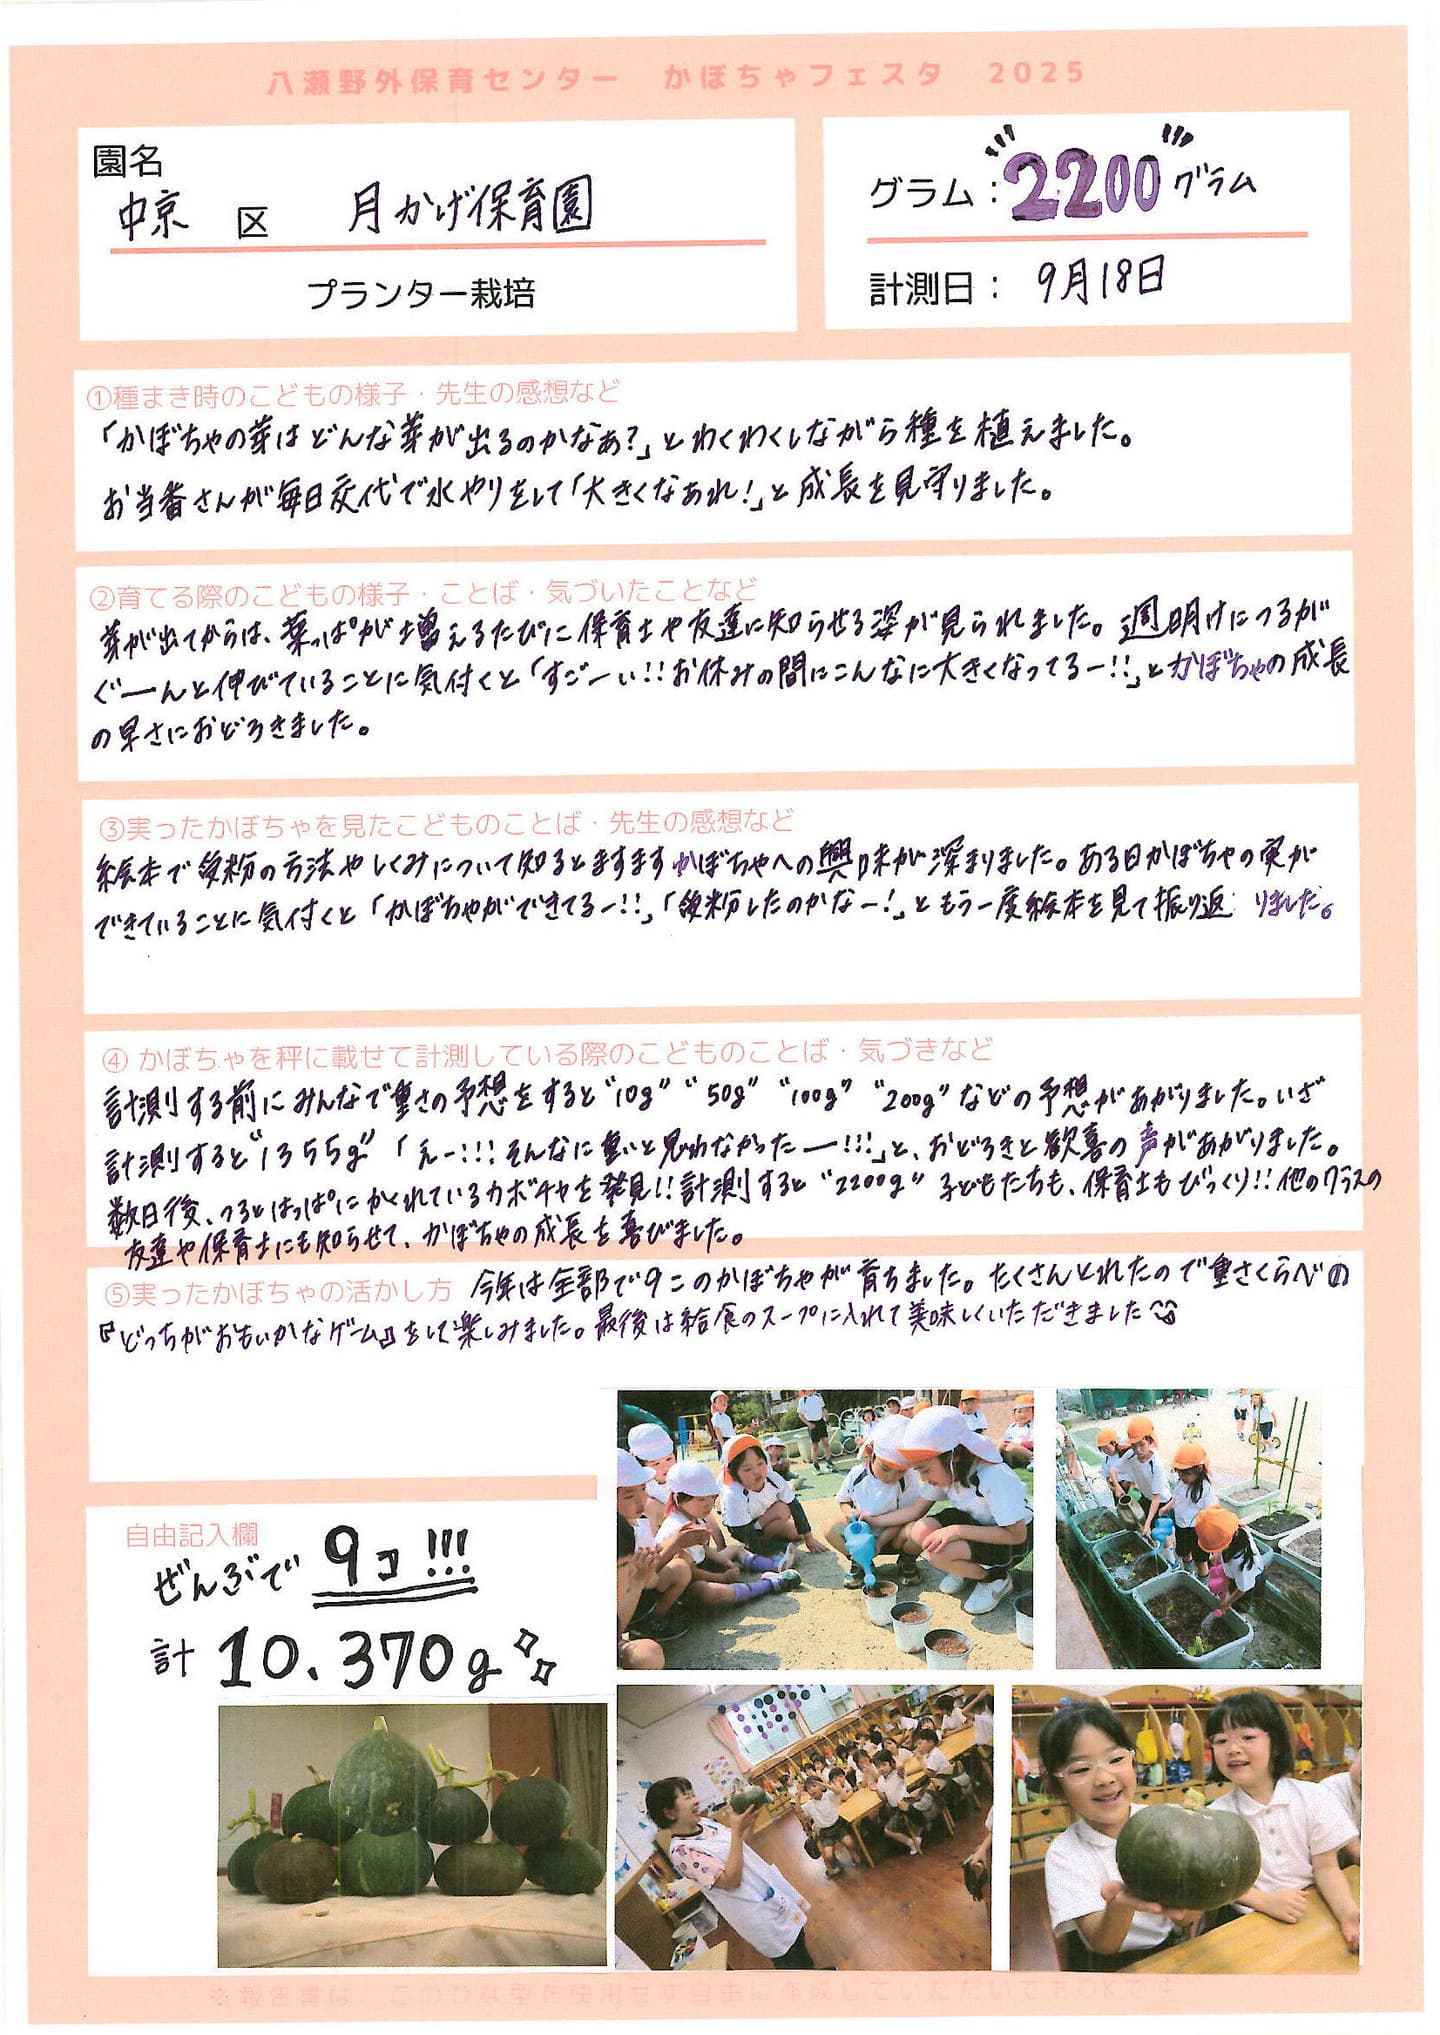 八瀬野外保育センター　かぼちゃフェスタ　2025
園名
中京　区　月かげ保育園
プランター栽培
グラム：2200グラム
計測日：9月18日
①種まき時のこどもの様子・先生の感想など
「かぼちゃの芽はどんな芽が出るのかなぁ?」とわくわくしながら種を植えました。
お当番さんが毎日交代で水やりをして「大きくなあれ!」と成長を見守りました。
②育てる際のこどもの様子・ことば・気づいたことなど
芽が出てからは、葉っぱが増えるたびに保育士や友達に知らせる姿が見られました。週明けにつるが
ぐーんと伸びていることに気付くと「すごーい!!お休みの間にこんなに大きくなってるー!!」とかぼちゃの成長
の早さにおどろきました。
③実ったかぼちゃを見たこどものことば・先生の感想など
絵本で受粉の方法やしくみについて知るとますますかぼちゃへの興味が深まりました。ある日かぼちゃの実が
できていることに気付くと「かぼちゃができてるー!!」「受粉したのかなー!」ともう一度絵本を見て振り返りました。
④ かぼちゃを秤に載せて計測している際のこどものことば・気づきなど
計測する前にみんなで重さの予想をすると"10g" "50g" "100g" "200g"などの予想があがりました。いざ
計測すると"1355g"「えー!!!そんなに重いと思わなかったー!!!」と、おどろきと歓喜の声があがりました。
数日後、つるとはっぱにかくれているカボチャを発見!!計測すると"2200g"子どもたちも、保育士もびっくり!!他のクラスの
友達や保育士にも知らせて、かぼちゃの成長を喜びました。
⑤実ったかぼちゃの活かし方　今年は全部で9このかぼちゃが育ちました。たくさんとれたので重さくらべの
『どっちがおもいかなゲーム』をして楽しみました。最後は給食のスープに入れて美味しくいただきました
自由記入欄
ぜんぶで 9コ!!!
計 10.370g
※報告書は、このひな型を使用せず自由に作成していただいてもOKです